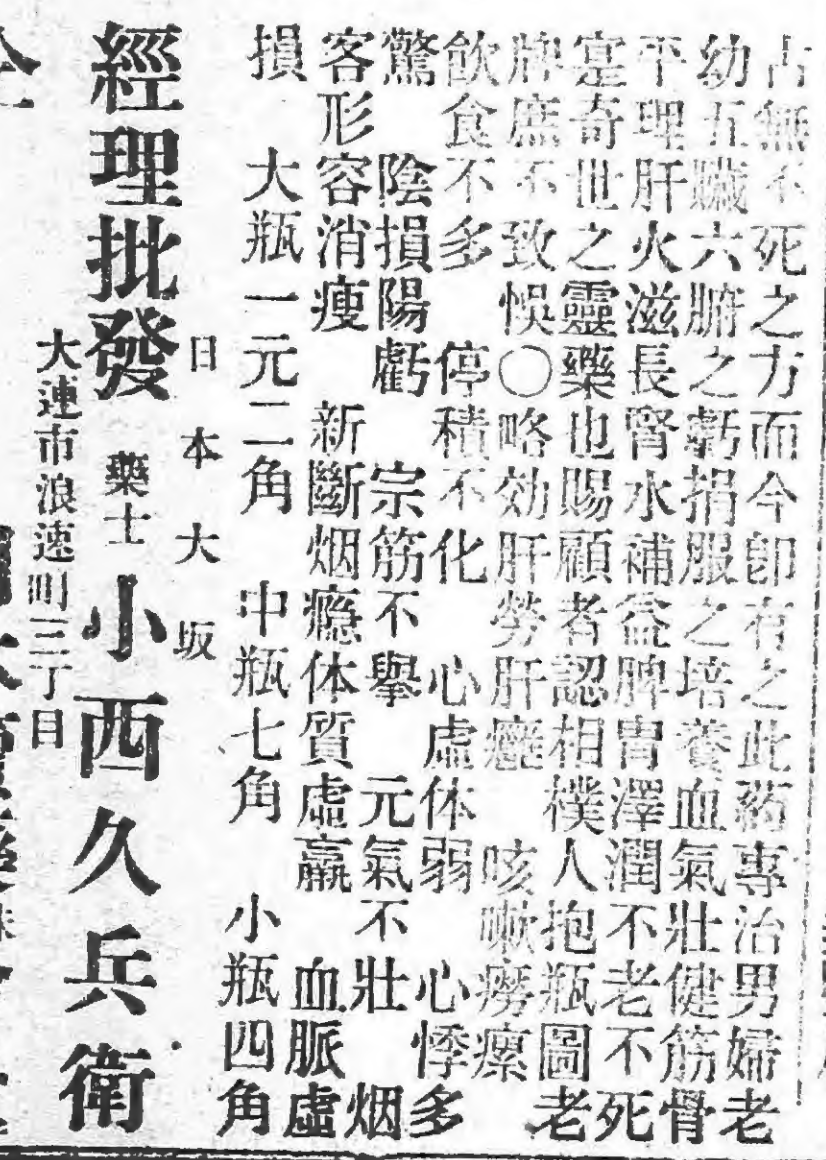 古無不死之方而今卽有之此葯專治男婦老
幼五臟六腑之虧損服之培養血氣壯健筋骨
平理肝火滋長腎水補益脾胃澤潤不老不死
寔奇世之靈藥也賜顧者認相樸人抱瓶圖老
牌庶不致悞〇略効肝勞肝癰 咳嗽癆瘰
飲食不多 停積不化 心虛体弱 心悸多
驚 陰損陽虧 宗筋不舉 元氣不壯 烟
客形容消瘦 新斷烟癮体質虛羸 血脈虛
損 大瓶一元二角 中瓶七角 小瓶四角
日本大坂
經理批發 藥士 小西久兵衛
大連市浪速町三丁目